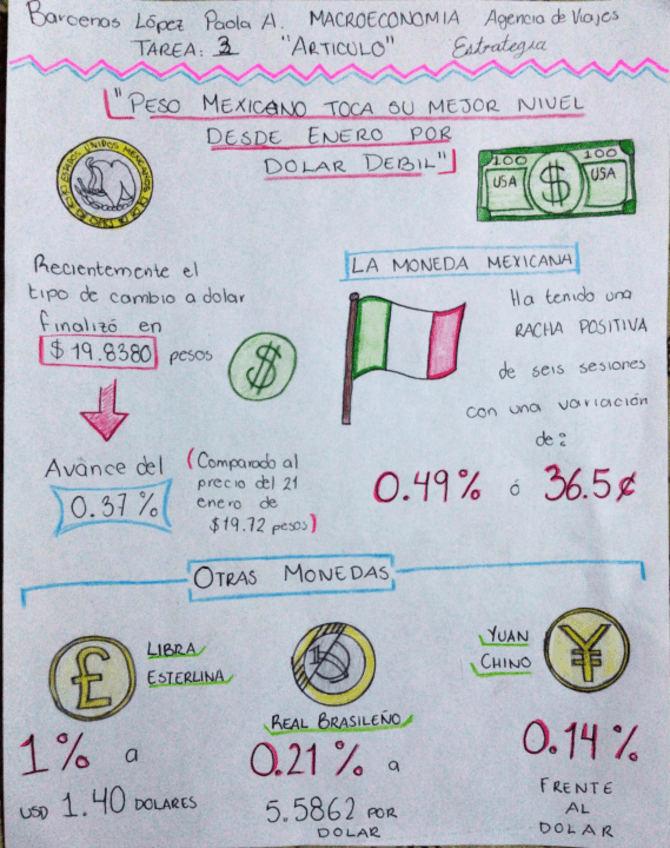 Barcenas López Paola A. MACROECONOMIA Agencia de Viajes
TAREA: 3 "ARTICULO" Estrategia
"PESO MEXICANO TOCA SU MEJOR NIVEL
DESDE ENERO POR
DOLAR DEBIL"
ESTADOS UNIDOS MEXICANOS
100 100
USA $ USA
Recientemente el
tipo de cambio a dolar
finalizó en
$ 19.8380 pesos
$
Avance del
0.37%
(Comparado al
precio del 21
enero de
$19.72 pesos)
LA MONEDA MEXICANA
Ha tenido una
RACHA POSITIVA
de seis sesiones
con una variación
de:
0.49% ó 36.5¢
OTRAS MONEDAS
£
LIBRA
ESTERLINA
1% a
USD 1.40 DOLARES
1
REAL BRASILEÑO
0.21% a
5.5862 POR
DOLAR
YUAN
CHINO
¥
0.14%
FRENTE
AL
DOLAR